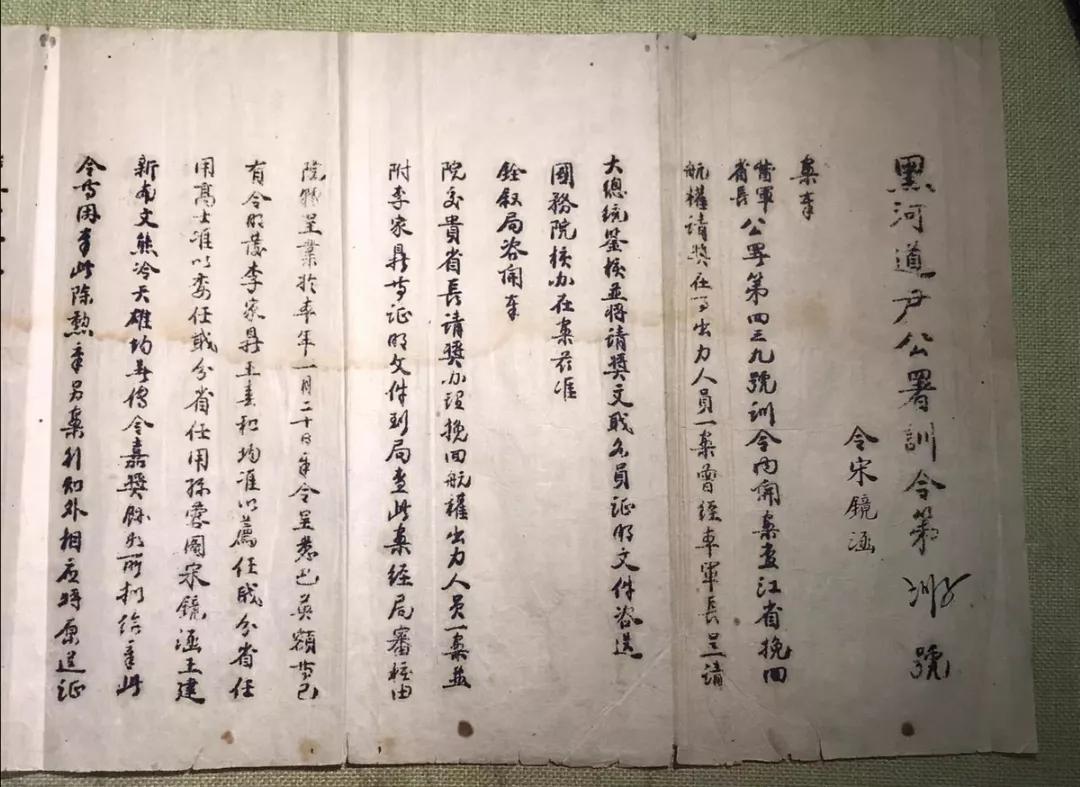 黑河道尹公署訓令第號
令宋鏡涵
案奉
督軍省長公署第四三九號訓令內開案查江省挽回
航權請獎在事出力人員一案曾經本軍長呈請
大總統鑒核並將請獎文職各員证明文件咨送
國務院核办在案茲准
銓叙局咨開奉
院交貴省長請獎办理挽回航權出力人員一案並
附李家鼎等证明文件到局查此案經局審核由
院轉呈業於本年一月二十日奉令呈悉巴英額等已
有令明發李家鼎王春和均准以薦任或分省任
用高士准以委任或分省任用孫蓉圖宋鏡涵王建
新尤文熊冷天雄均著傳令嘉獎餘如所拟给章此
令等因奉此除勲章另案行知外相应將原送证